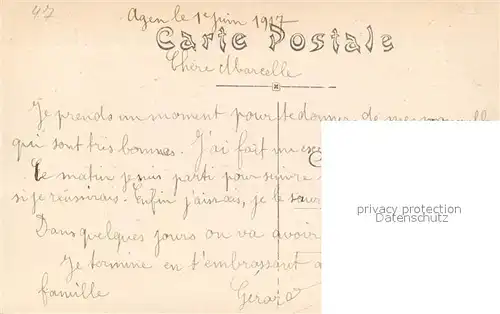 47
Agen le 1er juin 1917
Carte Postale
Chère Marcelle
Je prends un moment pour te donner de mes
qui sont très bonnes. J'ai fait un
Ce matin je suis parti pour suivre
si je réussirais. Enfin j'ai mais, je le
Dans quelques jours on va avoir
Je termine en t'embrassant
famille
Gérard
privacy protection
Datenschutz